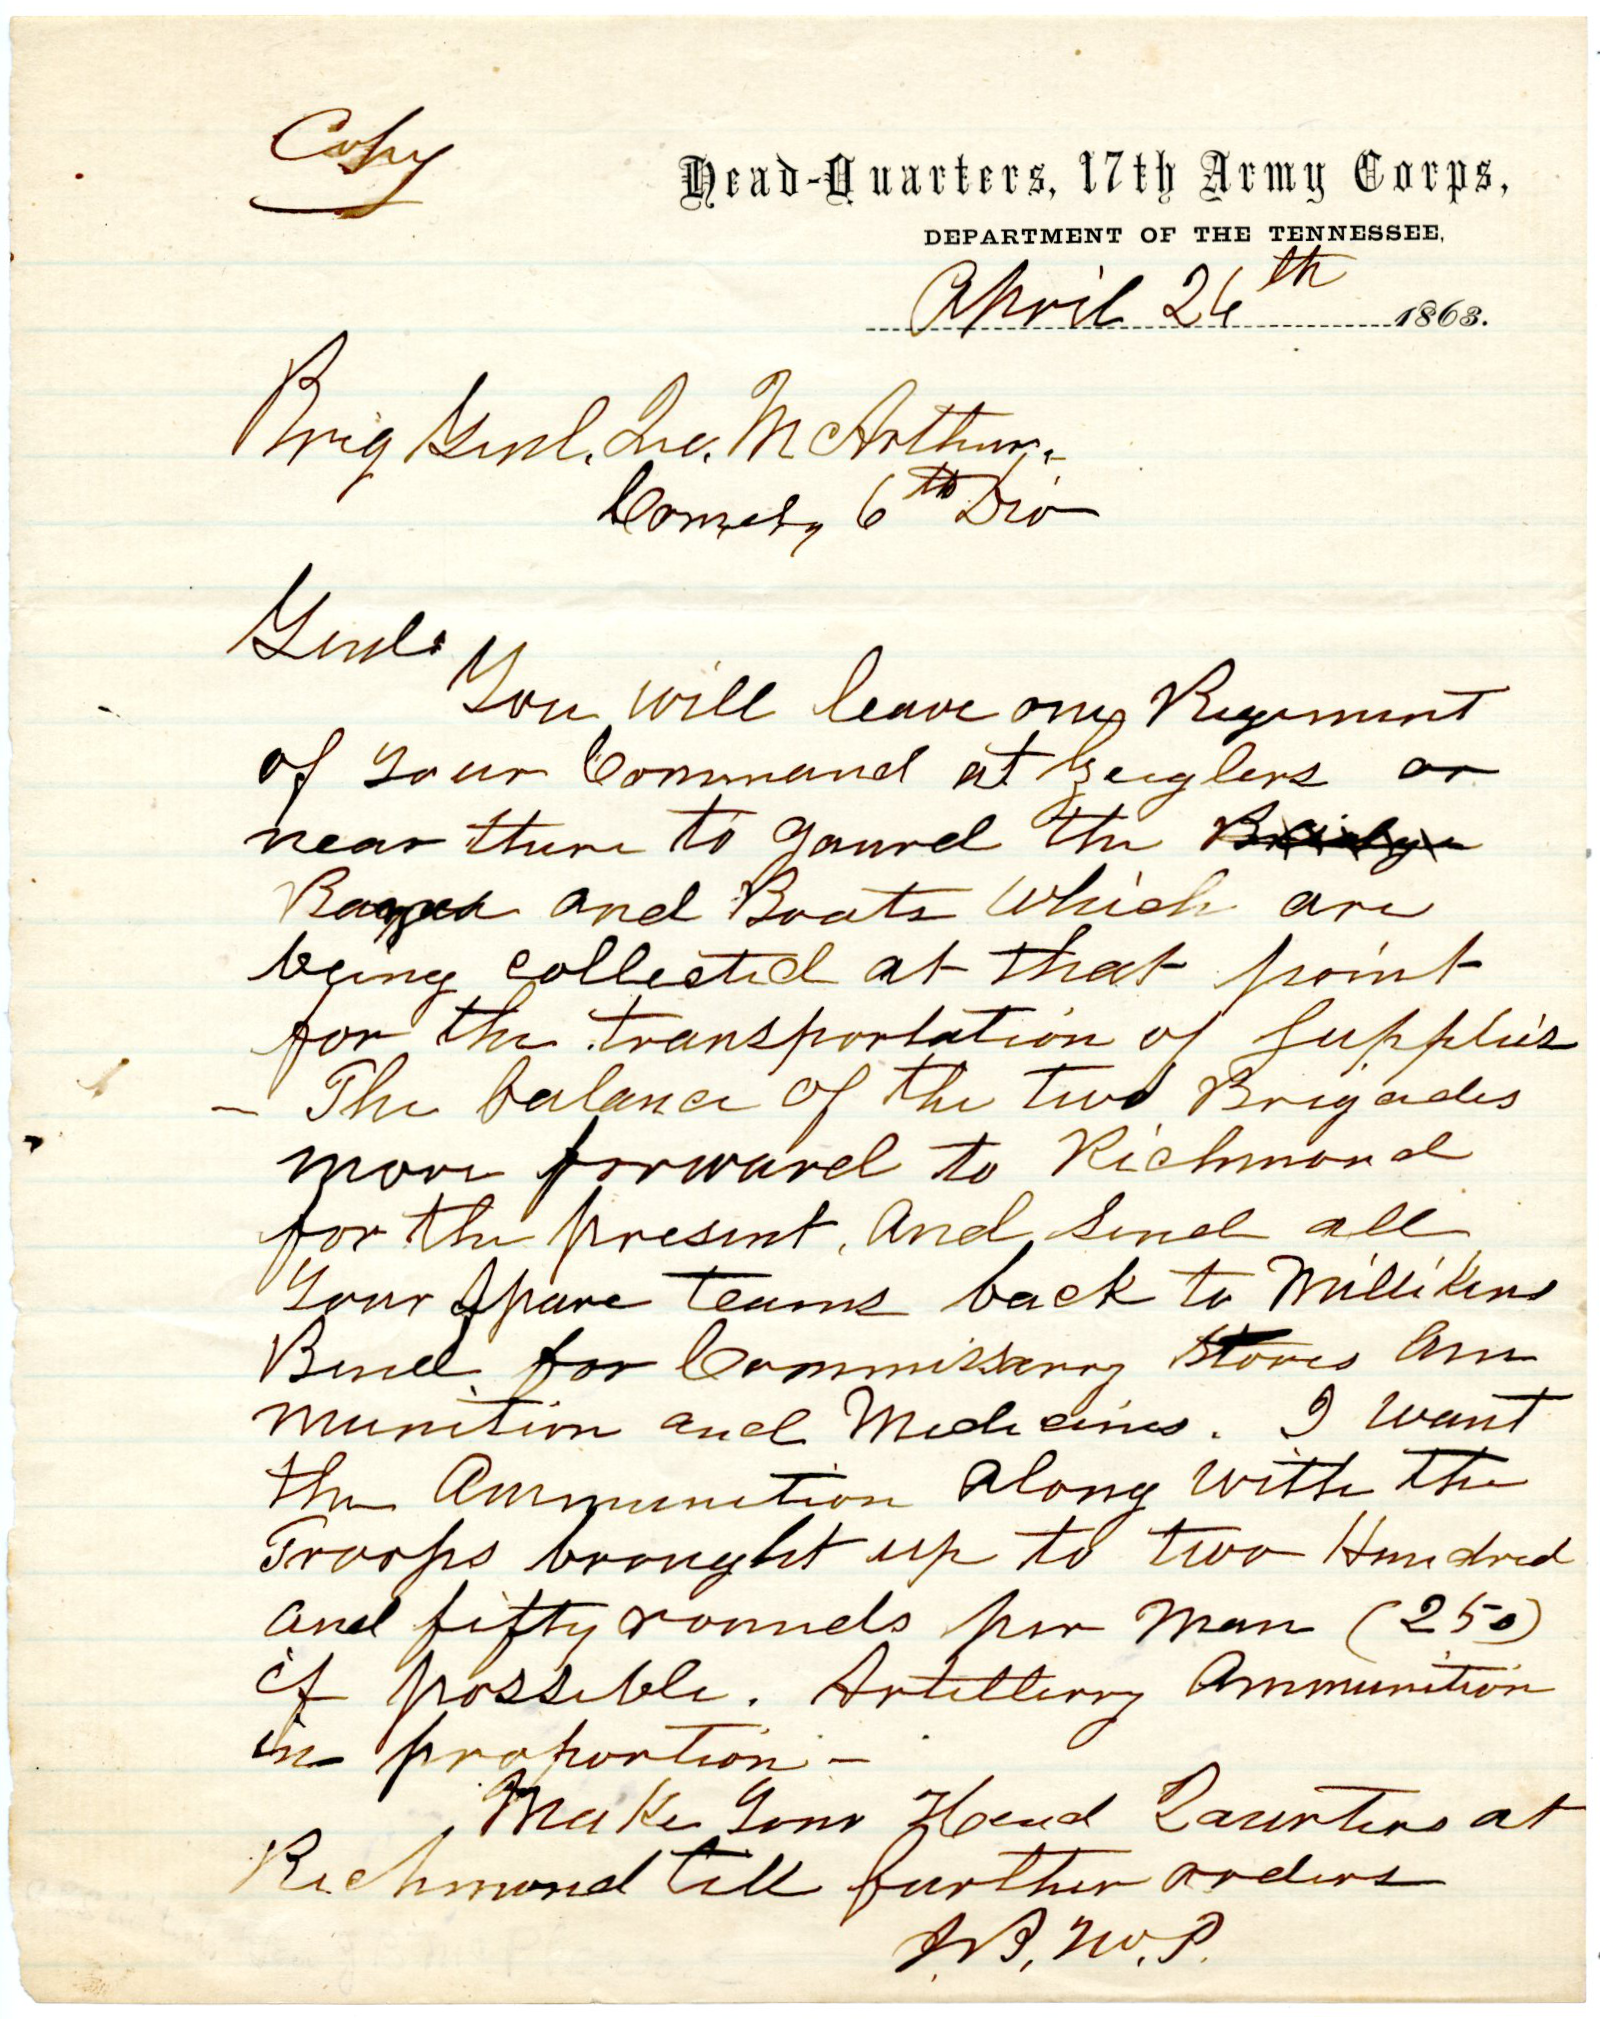 Copy
Head-Quarters, 17th Army Corps,
DEPARTMENT OF THE TENNESSEE,
April 26th 1863.
Brig Genl. Jno. McArthur.
Comdg 6th Div
Genl.
You will leave one Regiment
of your Command at Zeiglers or
near there to gaurd the Bridge
Bayou and Boats which are
being collected at that point
for the transportation of Supplies
– The balance of the two Brigades
move forward to Richmond
for the present, and send all
your spare teams back to Millikens
Bend for Commissarry Stores Am
munition and Medicines. I want
the Ammunition along with the
Troops brought up to two Hundred
and fifty rounds per man (250)
if possible. Artillerry Ammunition
in proportion –
Make your Head Quarters at
Richmond till further orders
J.B. McP.